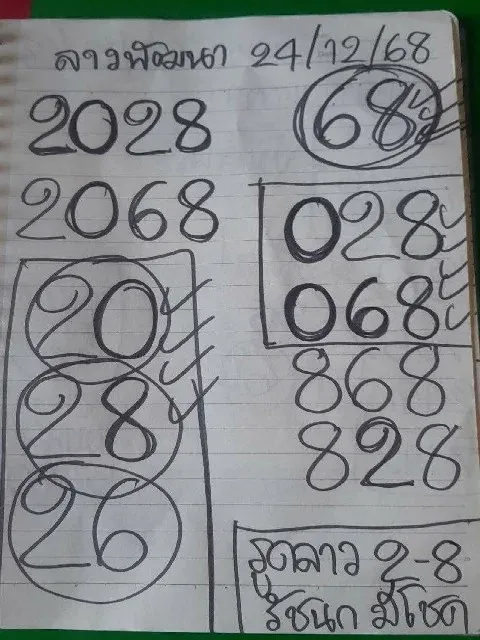 ลาวพัฒนา 24/12/68
2028
68
2068
028
20
068
28
868
828
26
รูดลาว 2-8
รัชนก มีโชค